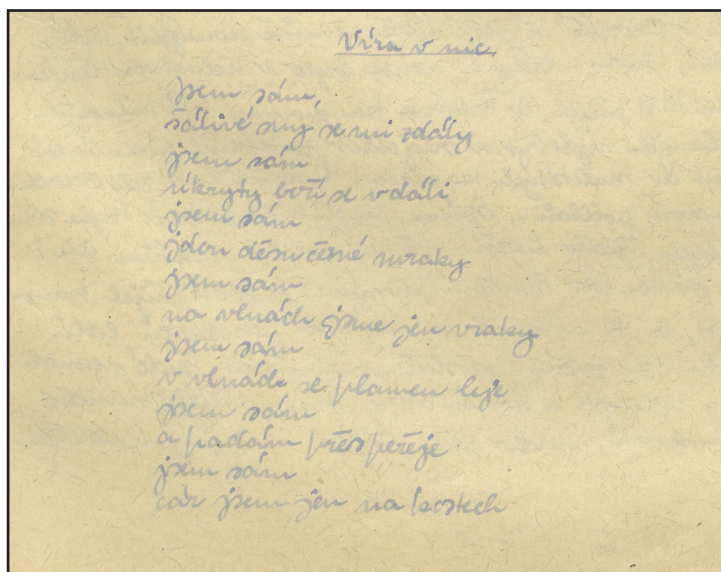 Víra v nic
jsem sám,
šálivé sny se mi zdály
jsem sám
úkryty boří se v dáli
jsem sám
jdou děsu černé mraky
jsem sám
na vlnách jsme jen vraky
jsem sám
v vlnách se plamen leje
jsem sám
a padám přes peřeje
jsem sám
cár jsem jen na kostech